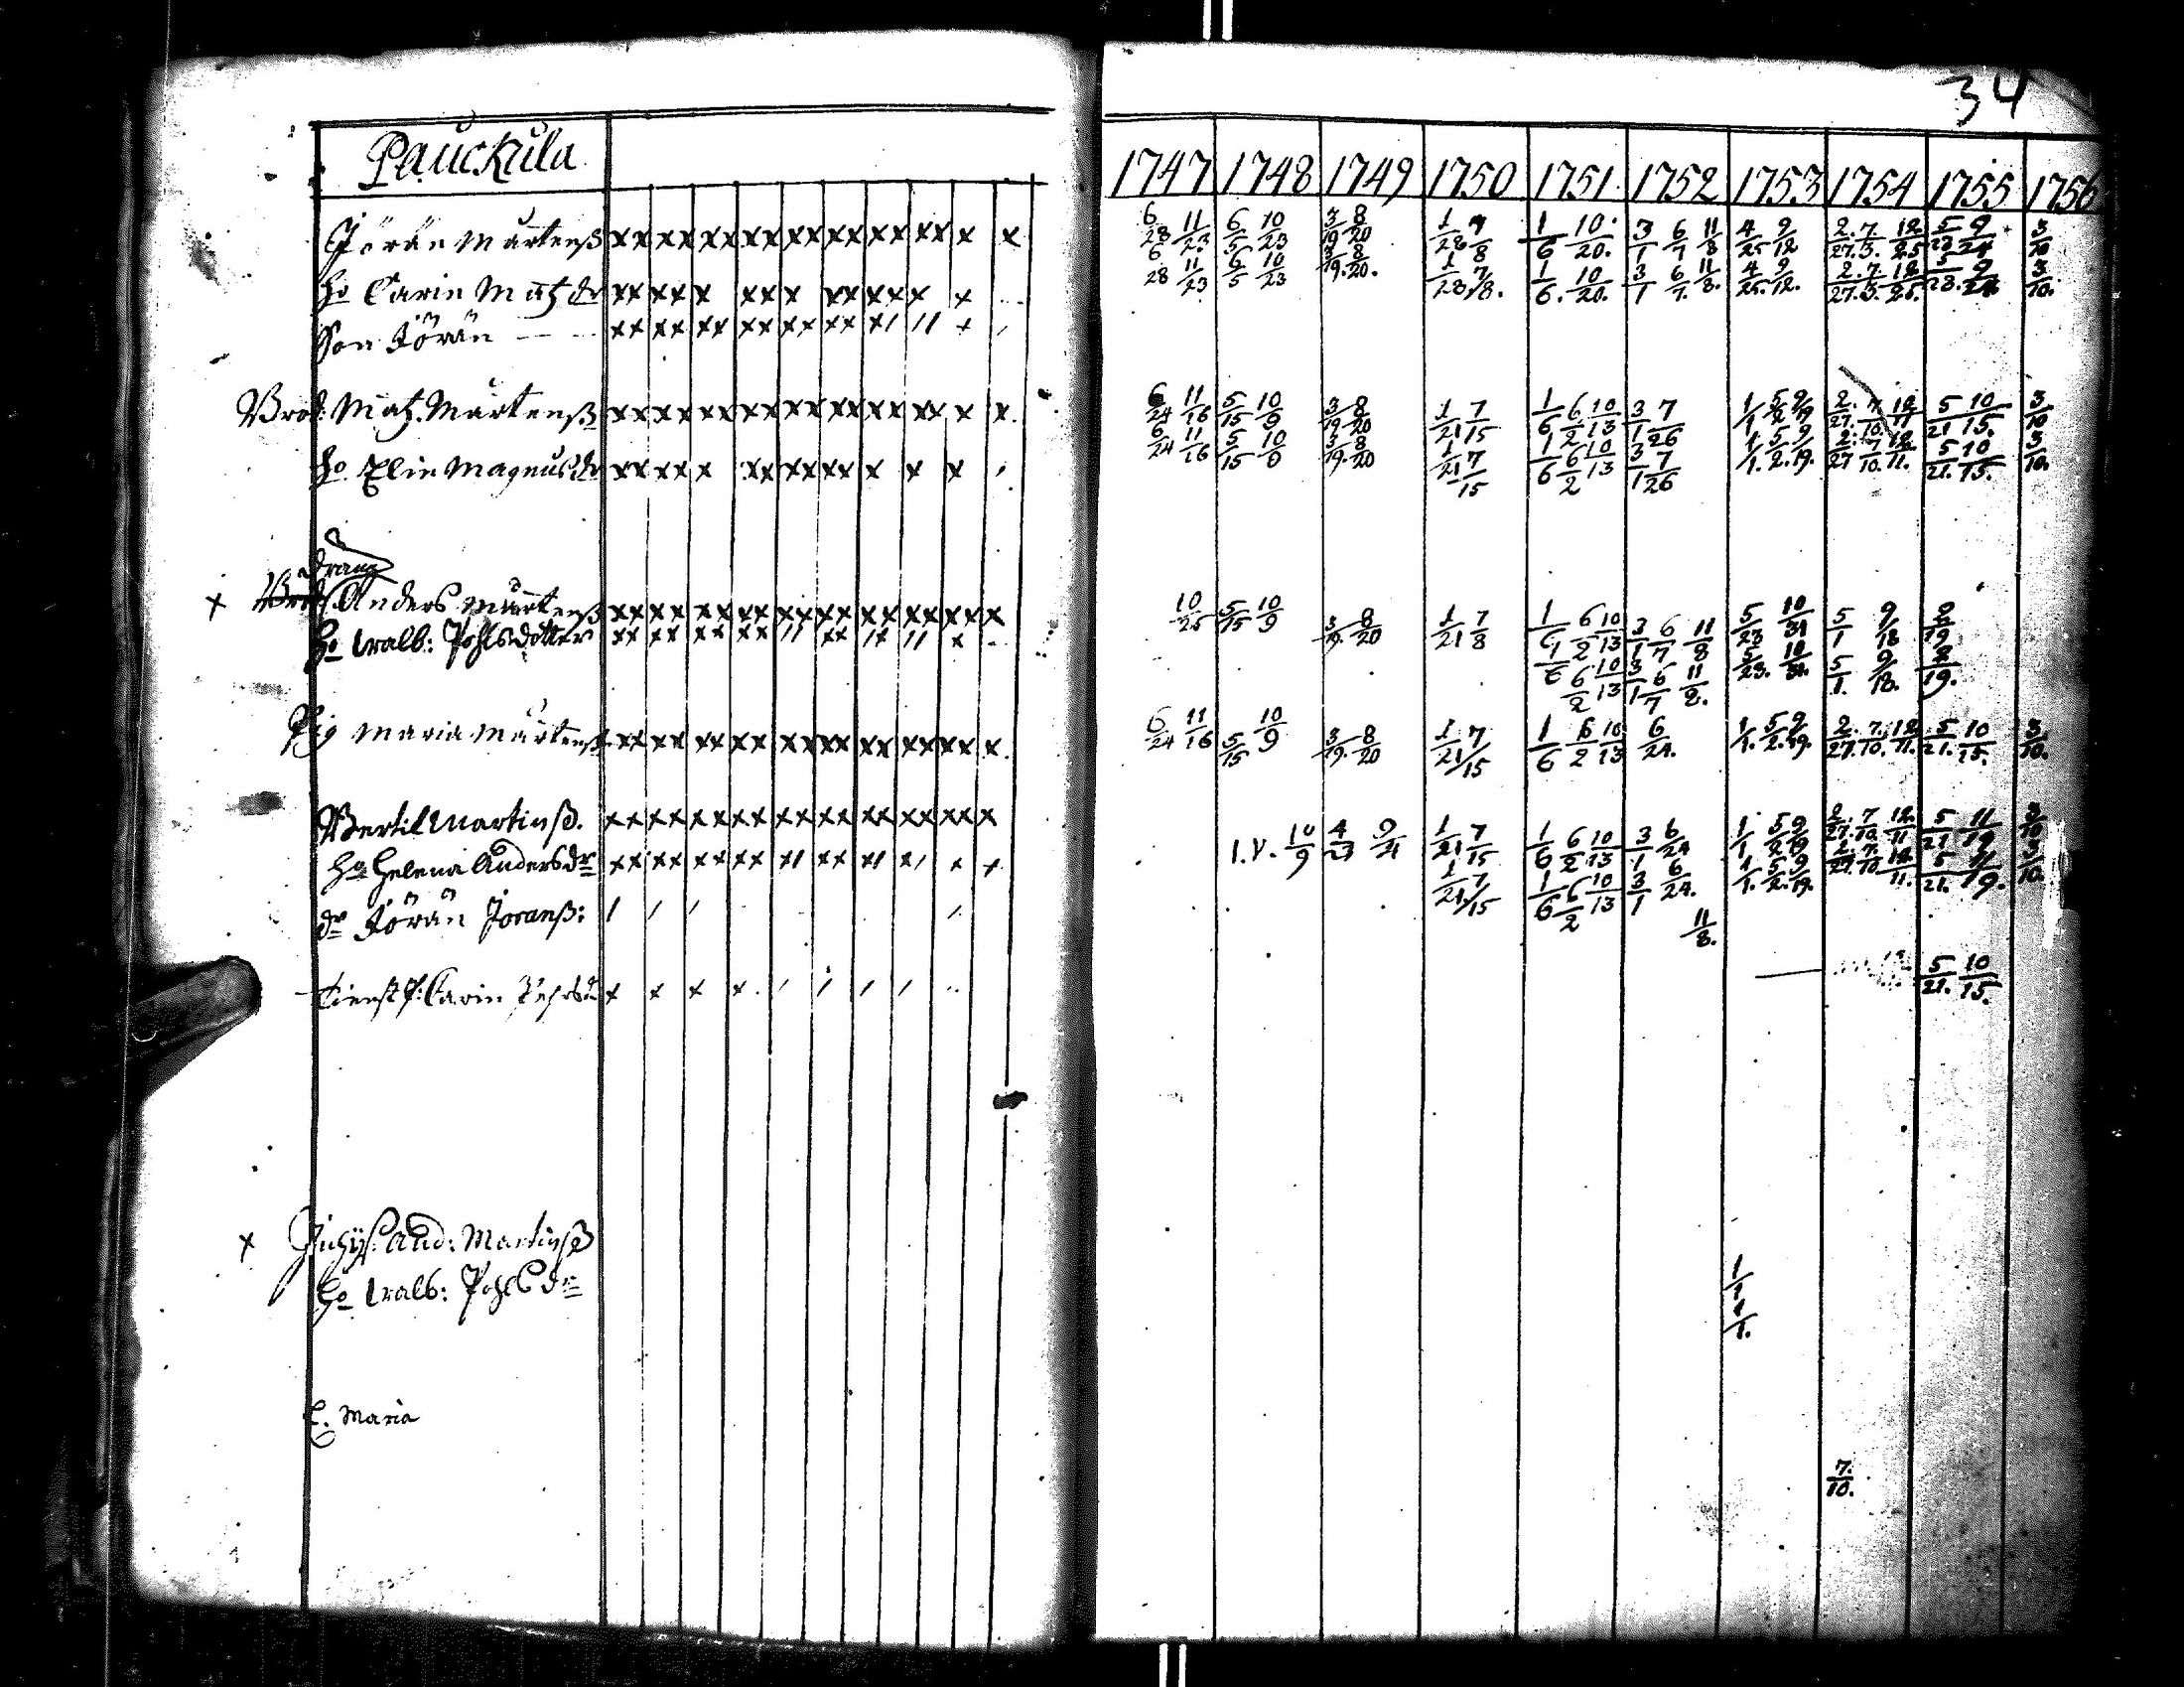 34
Pauckula
1747 1748 1749 1750 1751 1752 1753 1754 1755 1756
Jörän Mårtenß xx xx xx xx xx xx xx xx x x 6/28 11/23 6/5 10/23 3/19 8/20 1/28 7/8 1/6 10/20. 3/1 6/7 11/8 4/25 9/12 2/27. 7/3. 12/25 5/23 9/24 3/10
ho Carin Matz dr xx xx x xx x xx xx x x 6/28 11/23 6/5 10/23 3/19. 8/20. 1/28 7/8. 1/6. 10/20. 3/1 6/7. 11/8. 4/25. 9/12. 2/27. 7/3. 12/25. 5/23. 9/24 3/10.
Son Jörän xx xx xx xx xx xx x/ // x /
Brod: Matz. Mårtenß xx xx xx xx xx xx xx xx x x. 6/24 11/16 5/15 10/9 3/19 8/20 1/21 7/15 1/6 6/2 10/13 3/1 7/26 1/1 5/2 9/19 2/27. 7/10. 12/11 5/21 10/15. 3/10
ho Elin Magnusdr xx xx x xx xx xx x x x / 6/24 11/16 5/15 10/9 3/19. 8/20 1/21 7/15 1/6 6/2 10/13 3/1 7/26 1/1. 5/2. 9/19. 2/27 7/10. 12/11. 5/21. 10/15. 3/10.
dräng
x Brod Anders Mårtenß xx xx xx xx xx xx xx xx xx x 10/25 5/15 10/9 3/19. 8/20 1/21 7/8 1/6 6/2 10/13 3/1 6/7 11/8 5/23 10/31 5/1 9/18 2/19
ho Walb: Pohlsdotter xx xx xx xx // xx /x // x 1/6 6/2 10/13 3/1 6/7 11/8. 5/23. 10/31. 5/1. 9/18. 2/19.
Pig Maria Mårtenß xx xx xx xx xx xx xx xx xx x. 6/24 11/16 5/15 10/9 3/19. 8/20 1/21 7/15 1/6 6/2 10/13 6/24. 1/1. 5/2. 9/19. 2/27. 7/10. 12/11. 5/21. 10/15. 3/10.
Bertil Martinß. xx xx xx xx xx xx xx xx xx x 10/9 4/23 9/21 1/21 7/15 1/6 6/2 10/13 3/1 6/24 1/1 5/2 9/19 2/27. 7/10. 12/11 5/21 11/19 3/10
ho Helena Andersdr xx xx xx xx x/ xx x/ x/ x x 1/21 7/15 1/6 6/2 10/13 3/1 6/24. 1/1. 5/2. 9/19. 2/27. 7/10. 12/11. 5/21. 11/19. 3/10.
dr Jörän Joranß: / / / / 11/8.
tienst P: Carin x x x x / / / / 5/21. 10/15.
x And: Martinß
ho Walb: Pohls dr
Maria
7/10.